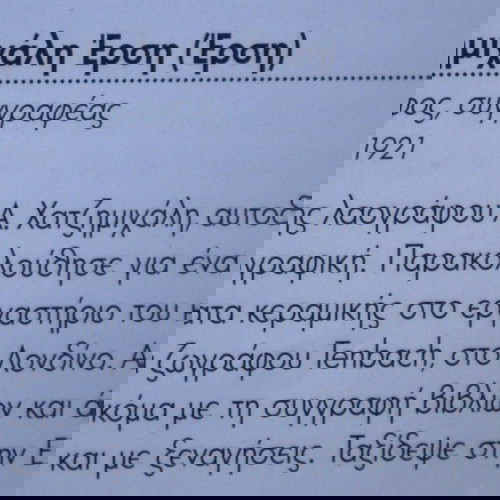 μιχάλη Έρση (Έρση)
νος, συγγραφέας
1921
Α. Χατζημιχάλη αυτοδης λαογράφου
Παρακολούθησε για ένα γραφική.
κεραμικής στο εργαστήριο του
στο Λονδίνο. Α ζωγράφου Tenbach,
και ακόμα με τη συγγραφή βιβλίων
Ταξίδεψε στην Ε και με ξεναγήσεις.